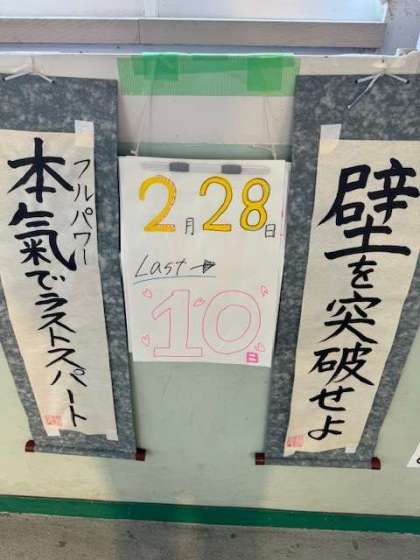 壁を突破せよ
2月28日
Last →
10日
フルパワー
本氣でラストスパート